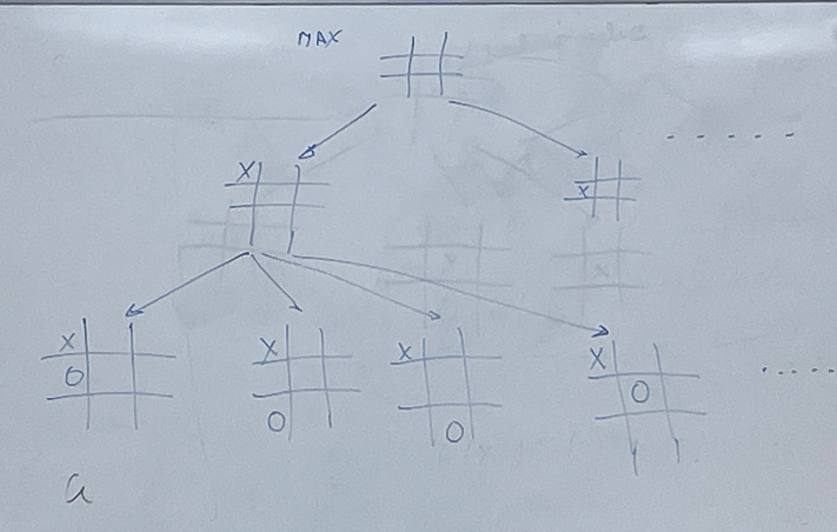 MAX
X
X
X
O
X
O
X
O
X
O
a